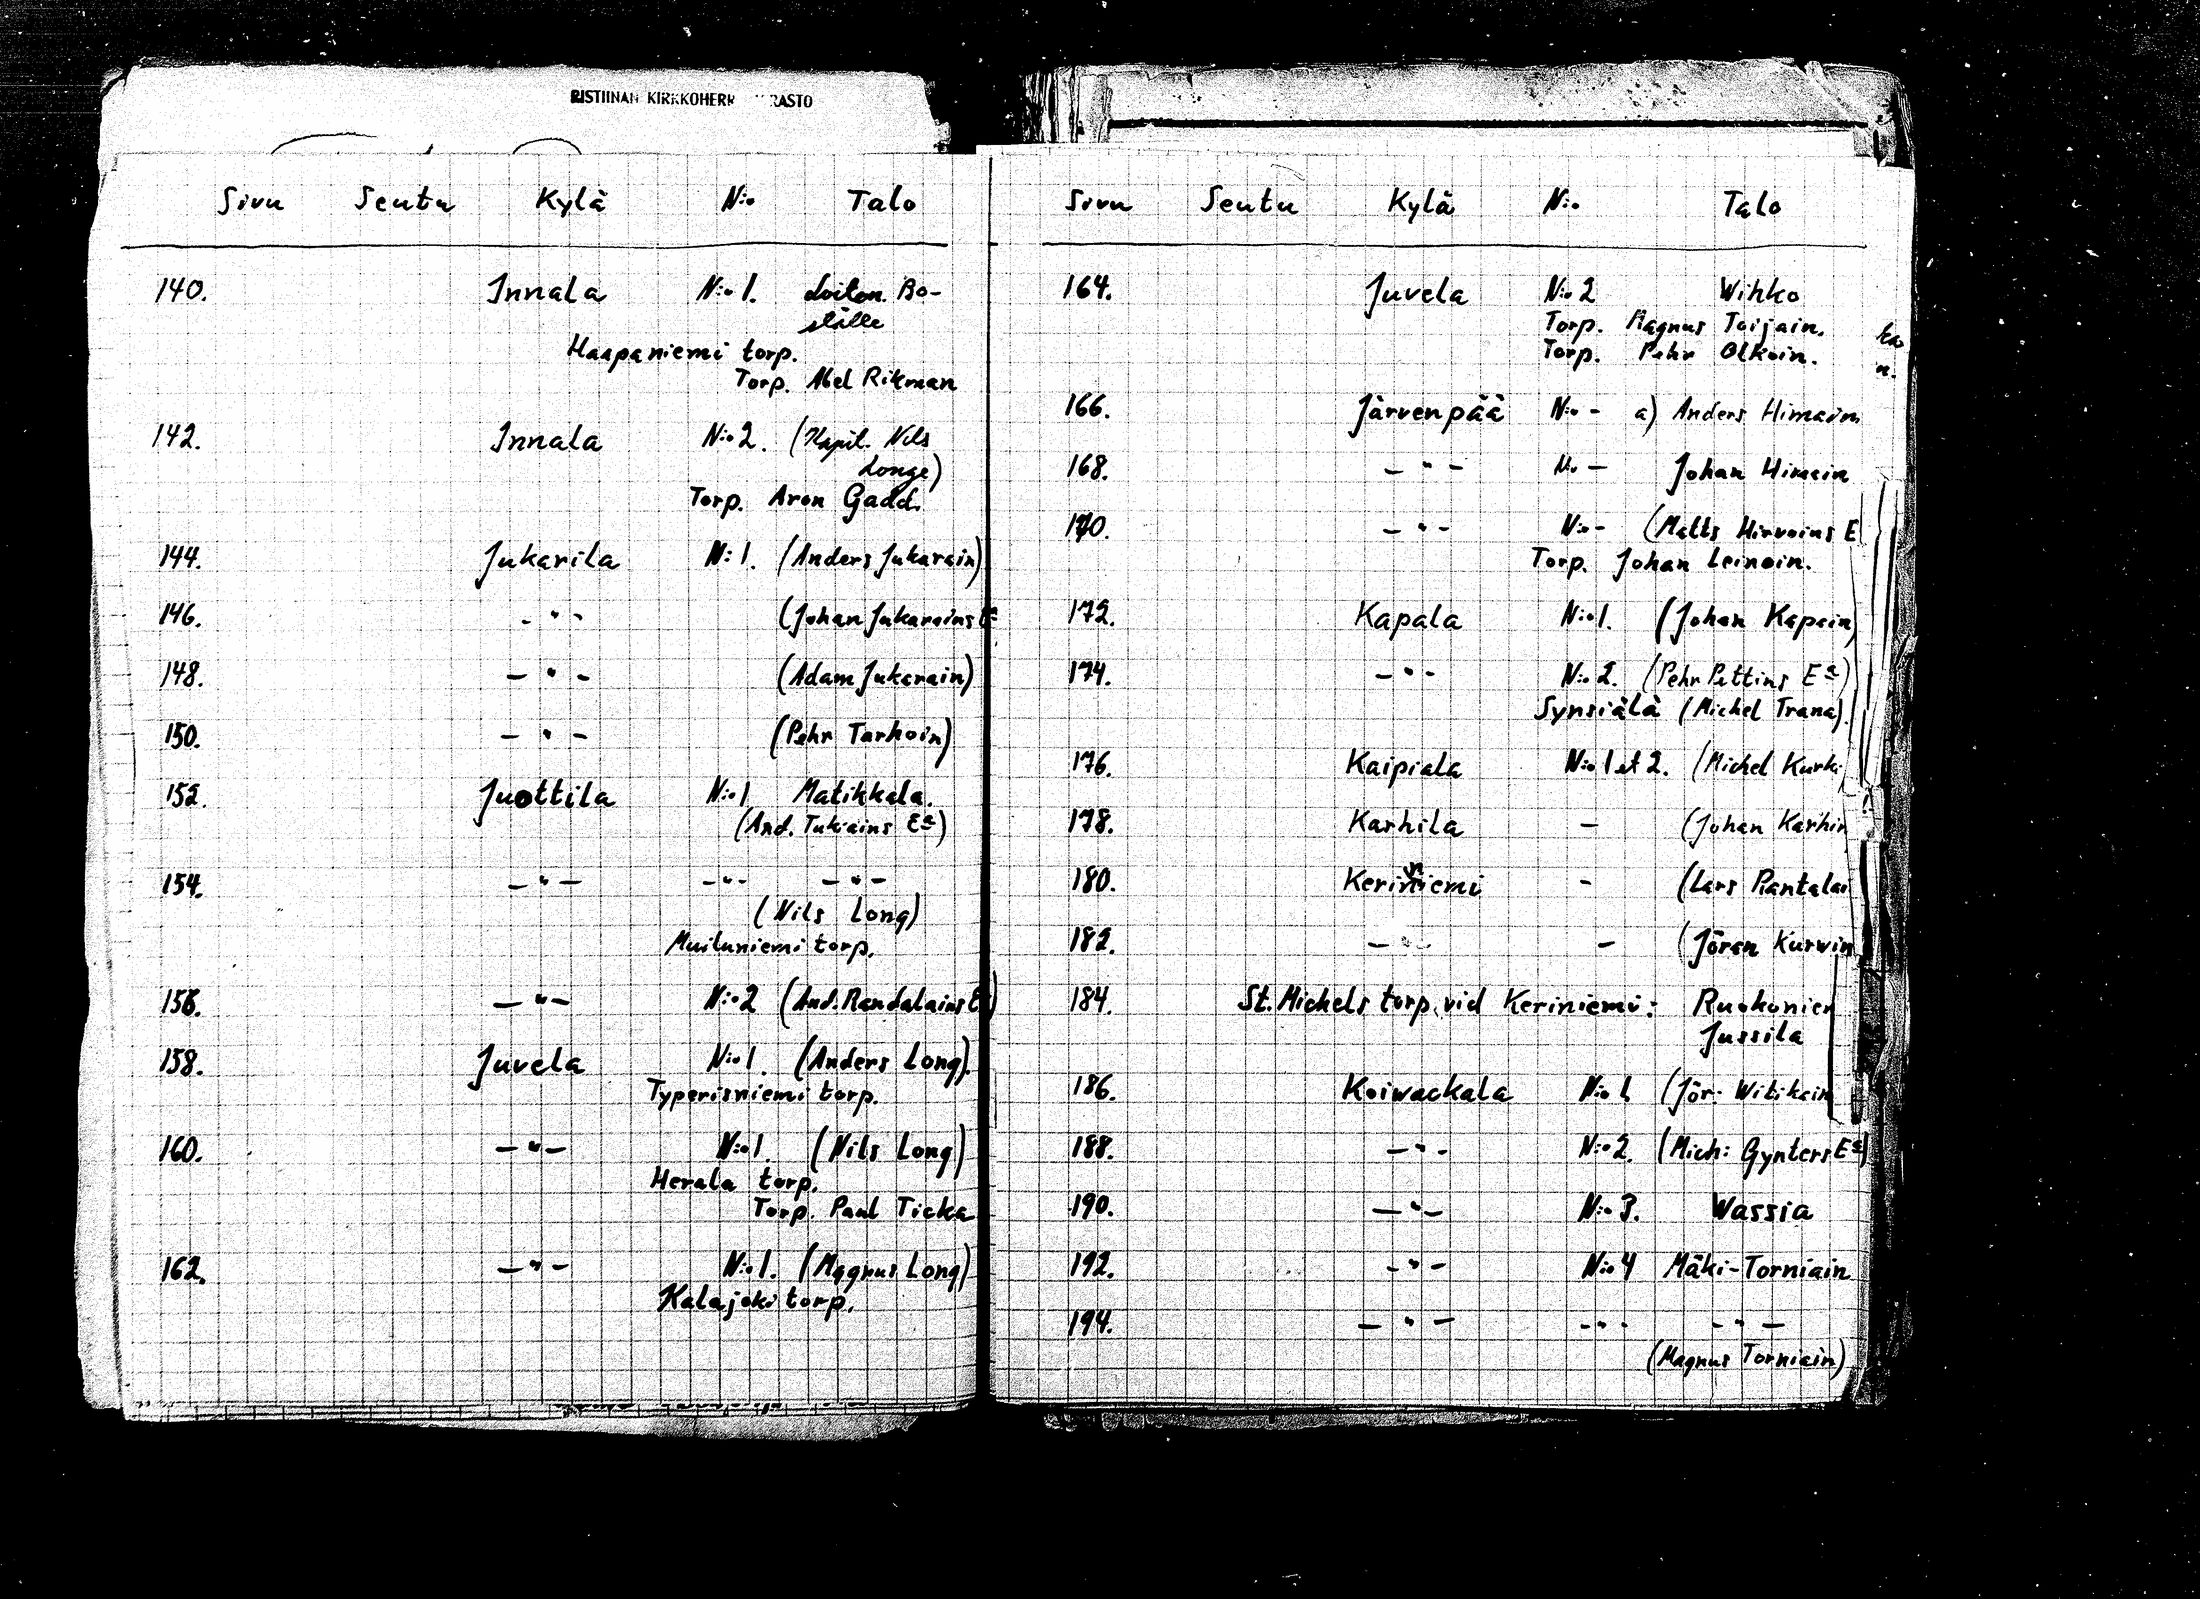 RISTIINAN KIRKKOHERR RASTO
Sivu Seutu Kylä N:o Talo
140. Innala N:o 1. Loiten. Bo-
ställe
Haapaniemi torp.
Torp. Abel Rikman
142. Innala N:o 2. (Kapit. Nils
Longe)
Torp. Aron Gadd.
144. Jukarila N: 1. (Anders Jukarain)
146. - " - (Johan Jukarains Ea
148. - " - (Adam Jukarain)
150. - " - (Pehr Tarhoin)
152. Juottila N:o 1 Matikkala.
(And. Tukiains Ea)
154. - " - - " - - " -
(Nils Long)
Muiluniemi torp.
156. - " - N:o 2 (And. Randalains Ea)
158. Juvela N:o 1. (Anders Long).
Typerisniemi torp.
160. - " - N:o 1. (Nils Long)
Herala torp.
Torp. Paul Ticka
162. - " - N:o 1. (Magnus Long)
Kalajoki torp.
Sivu Seutu Kylä N:o Talo
164. Juvela N:o 2 Wihko
Torp. Magnus Toijain.
Torp. Pehr Olkoin.
166. Järvenpää N:o - a) Anders Himain
168. - " - N:o - Johan Himain
170. - " - N:o - (Matts Hirvoins E
Torp. Johan Leinoin.
172. Kapala N:o 1. (Johan Kapain)
174. - " - N:o 2. (Pehr Pettins Ea)
Synsiälä (Michel Trana).
176. Kaipiala N:o 1 et 2. (Michel Kurki
178. Karhila - (Johan Karhin
180. Keriniemi - (Lars Pantalai
182. - " - - (Jören Kurvin
184. St. Michels torp. vid Keriniemi: Ruokonien
Jussila
186. Koivackala N:o 1. (Jör: Witikain
188. - " - N:o 2. (Mich: Gynters Ea)
190. - " - N:o 3. Wassia
192. - " - N:o 4 Mäki-Torniain
194. - " - - " - - " -
(Magnus Torniain)